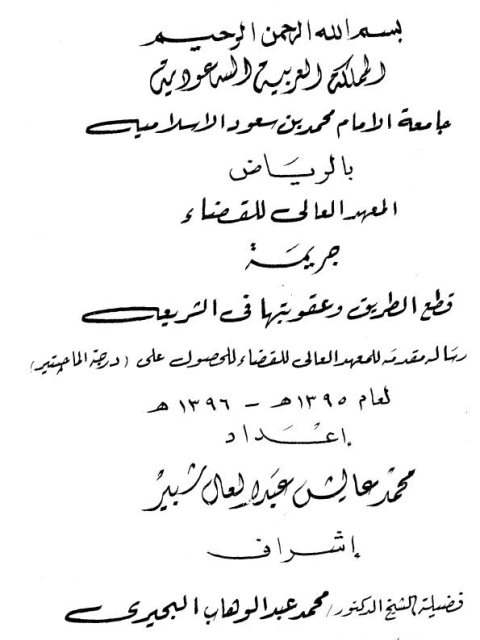 بسم الله الرحمن الرحيم
المملكة العربية السعودية
جامعة الامام محمد بن سعود الاسلامية
بالرياض
المعهد العالى للقضاء
جريمة
قطع الطريق وعقوبتها فى الشريعة
رسالة مقدمة للمعهد العالى للقضاء للحصول على (درجة الماجستير)
لعام ١٣٩٥هـ – ١٣٩٦ هـ
إعداد
محمد عايش عبد العال شبير
إشراف
فضيلة الشيخ الدكتور/ محمد عبد الوهاب البحيرى